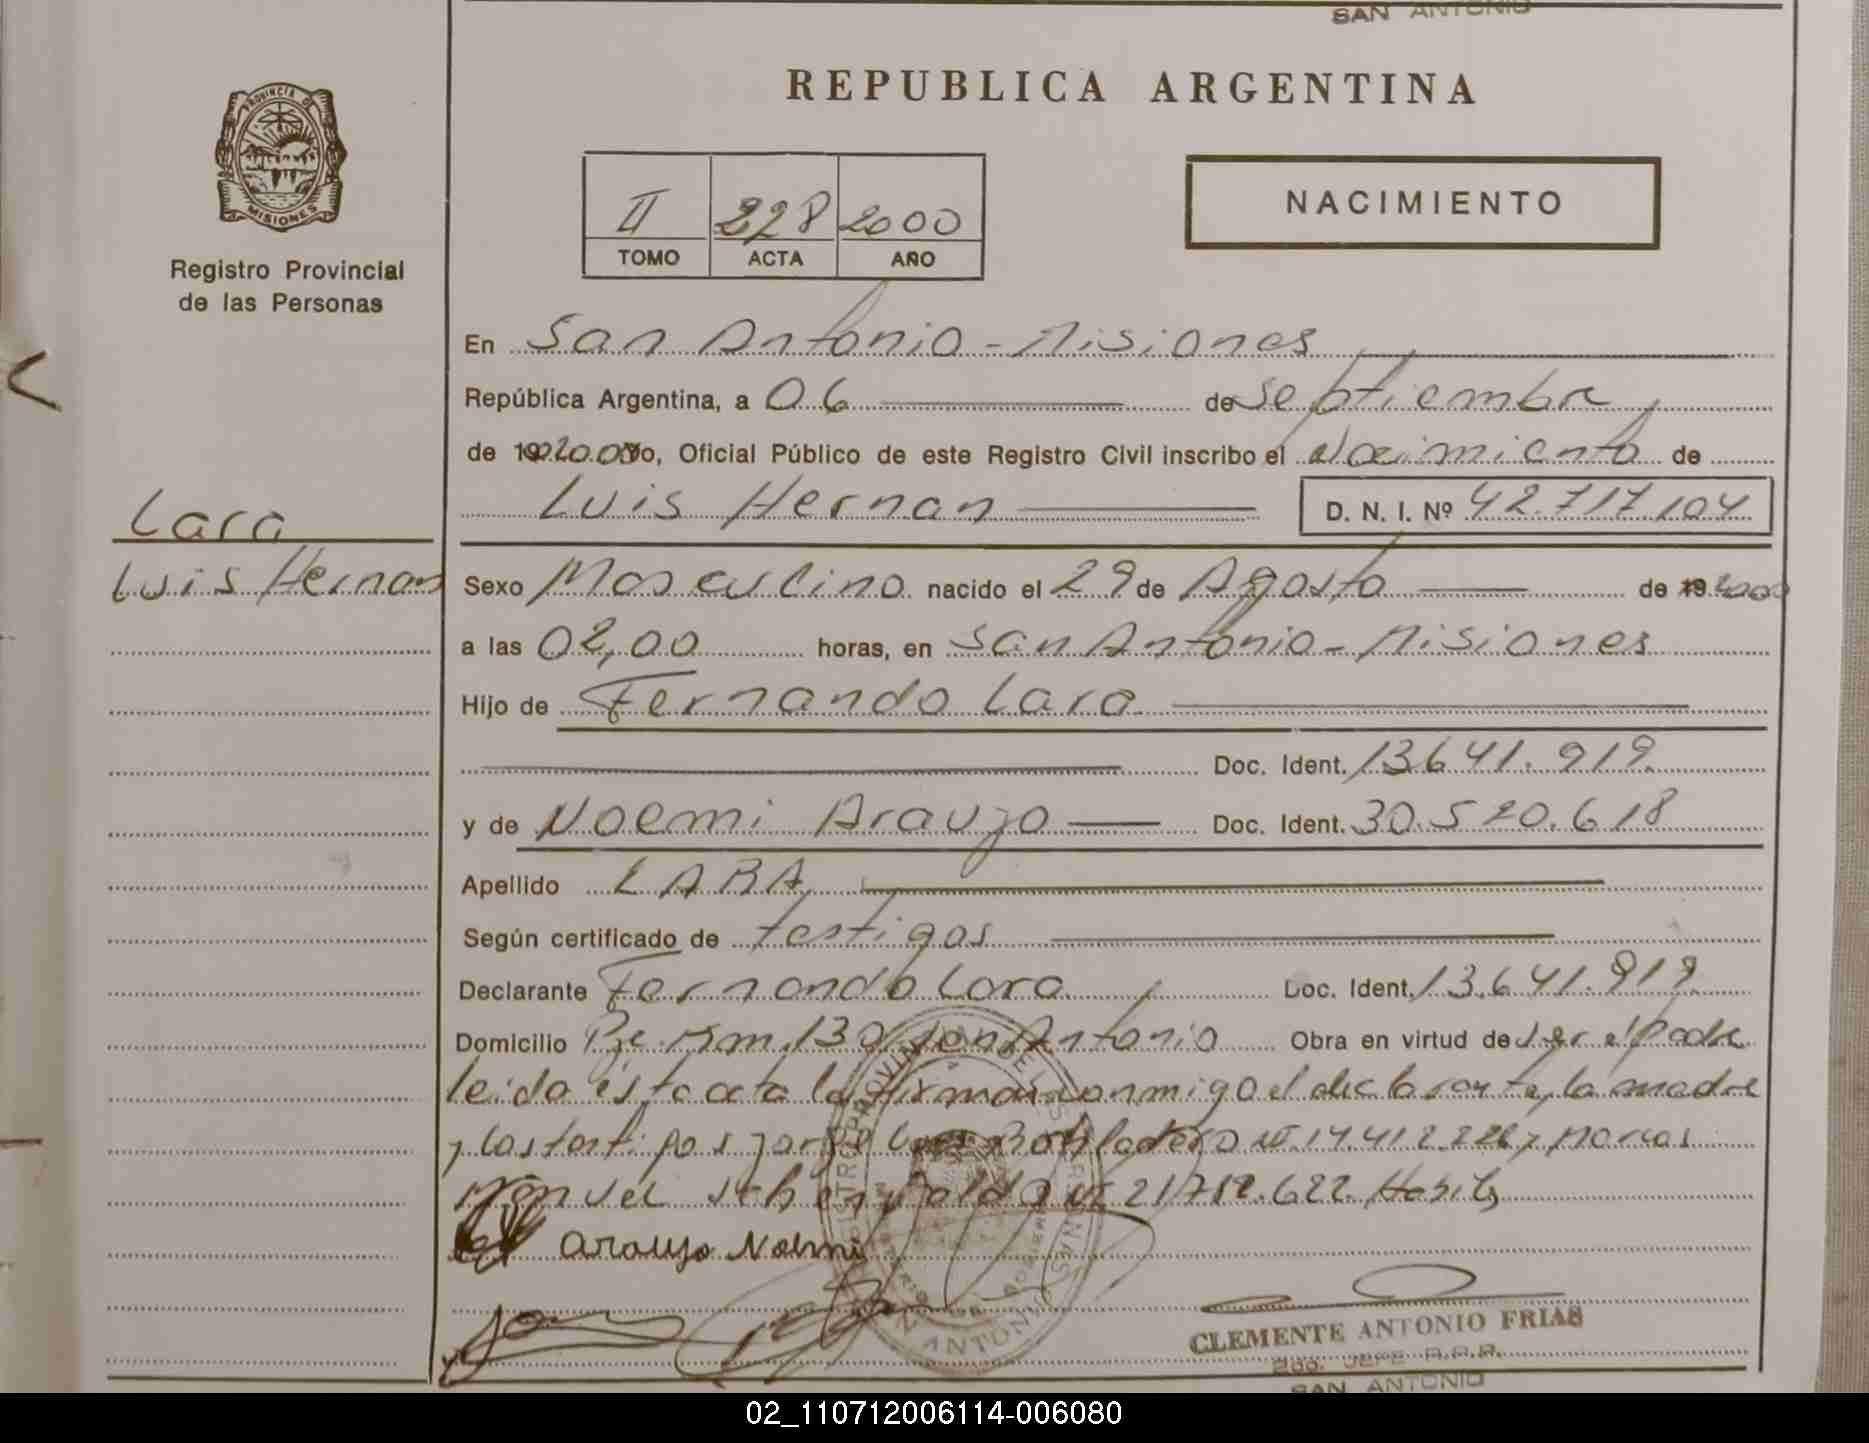 SAN ANTONIO
REPUBLICA ARGENTINA
PROVINCIA DE
MISIONES
Registro Provincial
de las Personas
II 228 2000
TOMO ACTA AÑO
NACIMIENTO
En San Antonio - Misiones
República Argentina, a 06 de Septiembre
de 192000 Yo, Oficial Público de este Registro Civil inscribo el Nacimiento de
Luis Hernan D. N. I. Nº 42.717.104
Lara
Luis Hernan
Sexo Masculino nacido el 29 de Agosto de 19 2000
a las 02,00 horas, en San Antonio - Misiones
Hijo de Fernando Lara
Doc. Ident. 13.641.919
y de Noemi Araujo Doc. Ident. 30.520.618
Apellido LARA
Según certificado de testigos
Declarante Fernando Lara Doc. Ident. 13.641.919
Domicilio Pje. Km. 130 San Antonio Obra en virtud de ser el Padre
leida esta acta la firman conmigo el declarante, la madre
y los testigos Jorge 14.412.226 y Marcos
Manuel 622
Araujo Noemi
CLEMENTE ANTONIO FRIAS
2do. JEFE R.P.P.
SAN ANTONIO
02_110712006114-006080